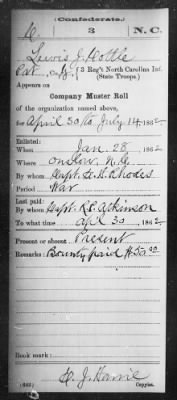 (Confederate.)
3 N. C.
Lewis J. Hottle
3 Reg't North Carolina Inf.
(State Troops.)
Appears on
Company Muster Roll
of the organization named above,
for April 30 to July 14, 1862
Enlisted:
When Jan. 28, 1862
Where Onslow, N.C.
By whom Capt. G. H. Rhodes
Period War
Last paid:
By whom Capt. R. E. Atkinson
To what time April 30, 1862
Present or absent Present
Remarks: Bounty paid
Book mark:
Copyist.